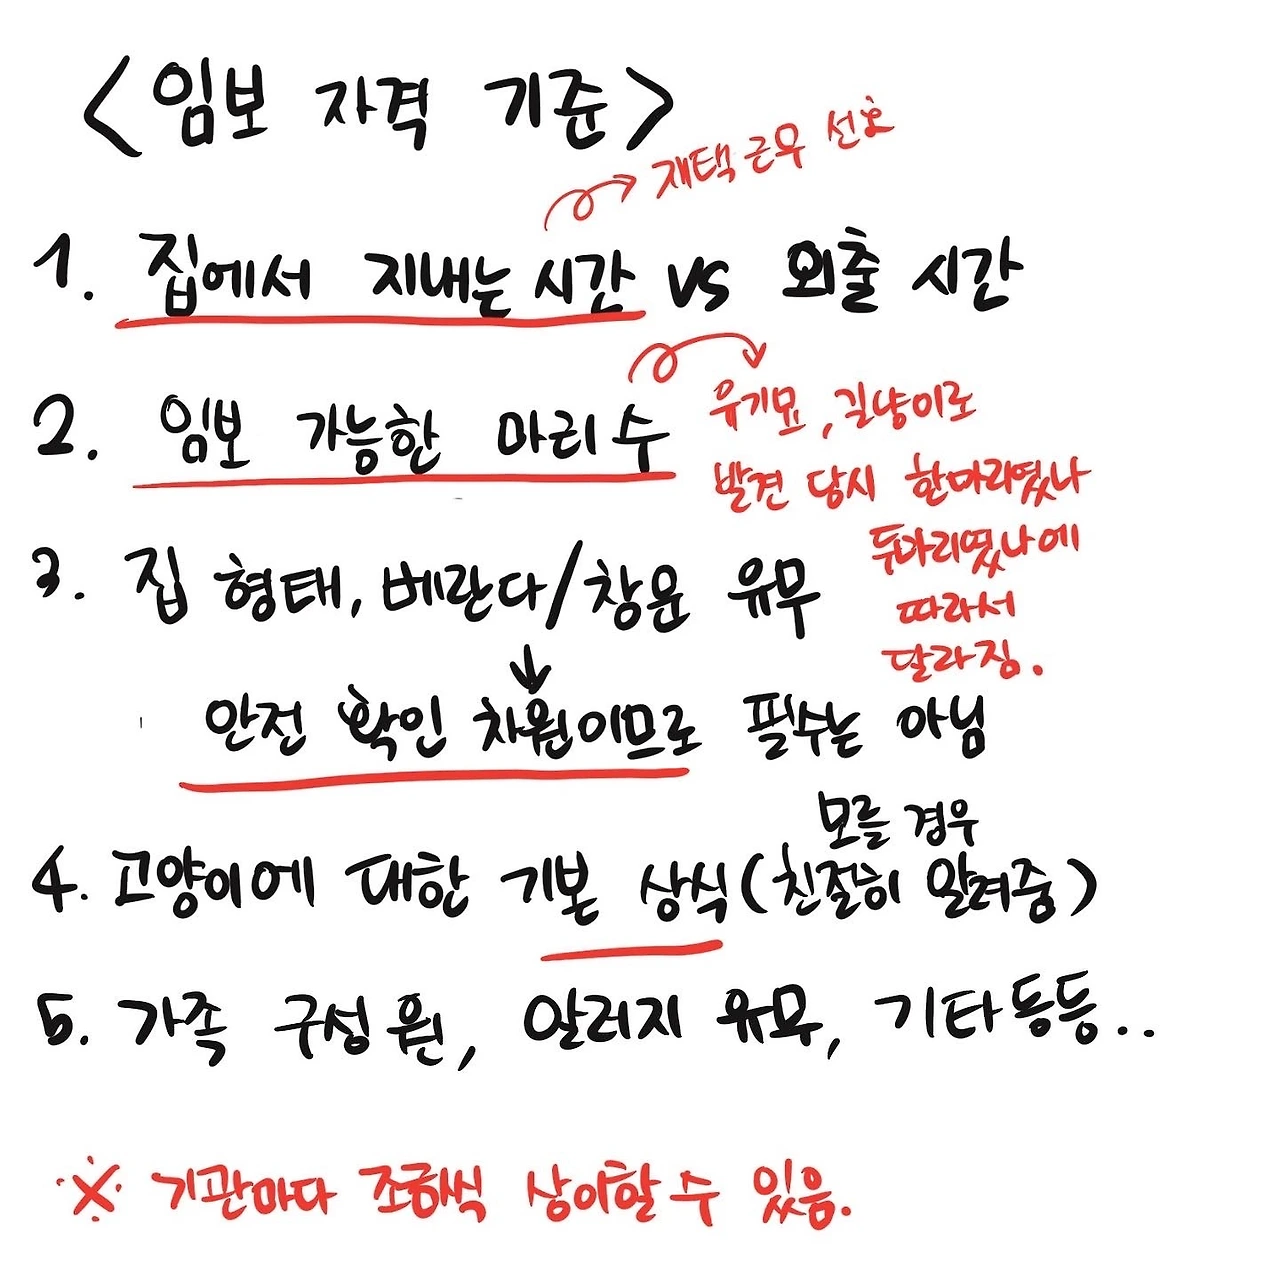 <임보 자격 기준>
재택 근무 선호
1. 집에서 지내는 시간 vs 외출 시간
2. 임보 가능한 마리 수
유기묘, 길냥이로
발견 당시 한마리였나
두마리였나에
따라서
달라짐.
3. 집 형태, 베란다/창문 유무
↓
안전 확인 차원이므로 필수는 아님
모를 경우
4. 고양이에 대한 기본 상식(친절히 알려줌)
5. 가족 구성원, 알러지 유무, 기타등등..
※ 기관마다 조금씩 상이할 수 있음.